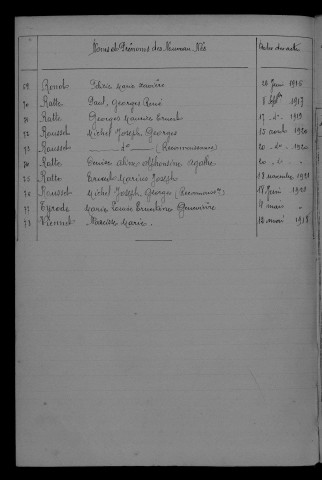 Noms et Prénoms des Nouveau-Nés Dates des actes
69 Renot Marie 26 Juin 1916
70 Ratte Paul, Georges René 8 Septbre 1917
71 Ratte Georges Maurice Ernest 17 - do - 1919
72 Rousset Michel Joseph Georges 13 août 1920
73 Rousset do (Reconnaissance) 20 - do - 1920
74 Ratte Denise Alice Alphonsine Agathe 20 - do - "
75 Ratte Ernest Marius Joseph 18 novembre 1921
76 Rousset Michel Joseph Georges (Reconnaissce) 18 Juin 1921
77 Eyrode Marie Louise Ernestine Geneviève 4 mars "
78 Viennet Narcisse Marie. 12 mai 1918